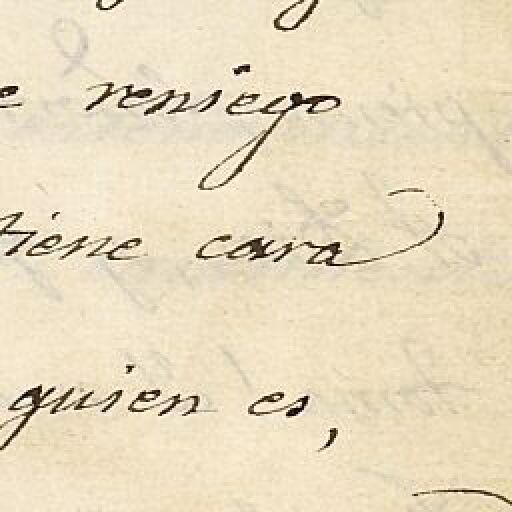 e reniego
tiene cara
quien es,